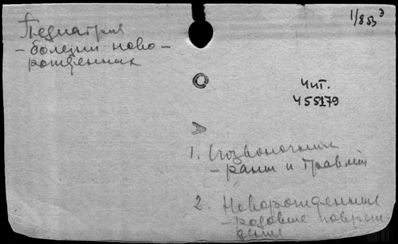 Педиатрия
1/8 53
- болезни ново-
рожденных
Чит.
455179
1. Позвоночник
- раны и травмы
2. Новорожденные
- родовые повреж
дения